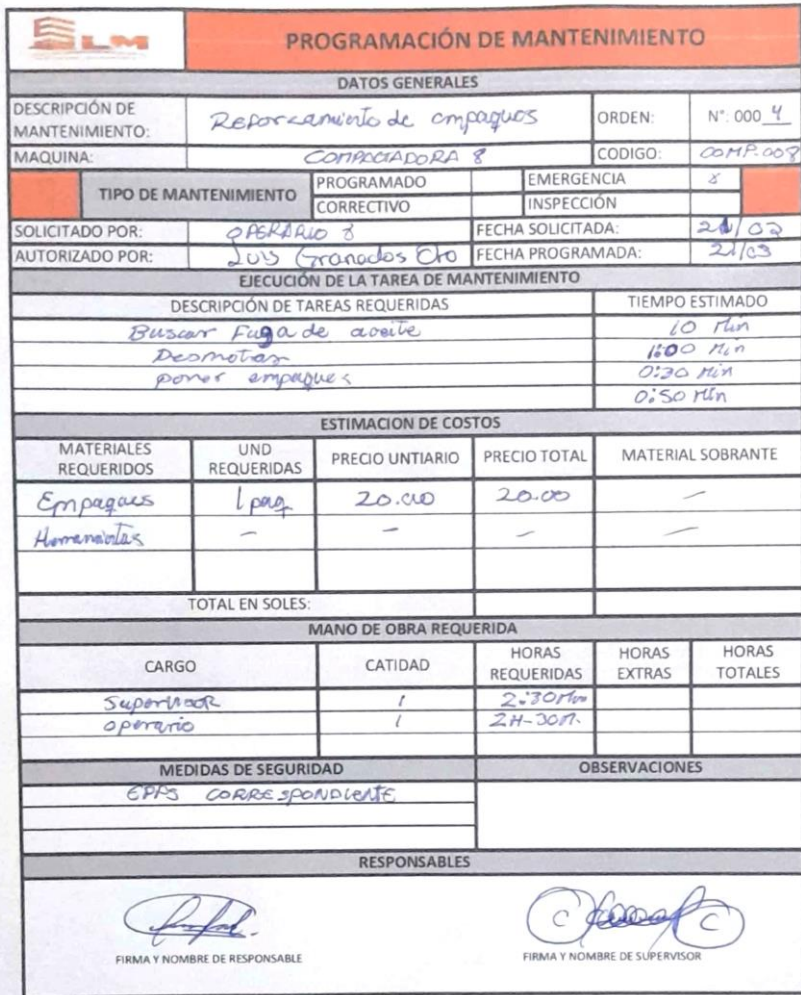 SLM
PROGRAMACIÓN DE MANTENIMIENTO
DATOS GENERALES
DESCRIPCIÓN DE MANTENIMIENTO: Reforzamiento de empaques ORDEN: N°. 000 4
MAQUINA: COMPACTADORA 8 CODIGO: COMP.008
TIPO DE MANTENIMIENTO PROGRAMADO EMERGENCIA x
CORRECTIVO INSPECCIÓN
SOLICITADO POR: OPERARIO 8 FECHA SOLICITADA: 21/03
AUTORIZADO POR: Luis Granados FECHA PROGRAMADA: 21/03
EJECUCIÓN DE LA TAREA DE MANTENIMIENTO
DESCRIPCIÓN DE TAREAS REQUERIDAS TIEMPO ESTIMADO
Buscar Fuga de aceite 10 Min
Desmotar 1:00 Min
poner empaques 0:30 Min
0:50 Min
ESTIMACION DE COSTOS
MATERIALES REQUERIDOS UND REQUERIDAS PRECIO UNTIARIO PRECIO TOTAL MATERIAL SOBRANTE
Empaques 1 paq 20.00 20.00 -
Herramientas - - - -
TOTAL EN SOLES:
MANO DE OBRA REQUERIDA
CARGO CATIDAD HORAS REQUERIDAS HORAS EXTRAS HORAS TOTALES
Supervisor 1 2:30
operario 1 2H-30M.
MEDIDAS DE SEGURIDAD OBSERVACIONES
EPPS CORRESPONDIENTE
RESPONSABLES
FIRMA Y NOMBRE DE RESPONSABLE FIRMA Y NOMBRE DE SUPERVISOR